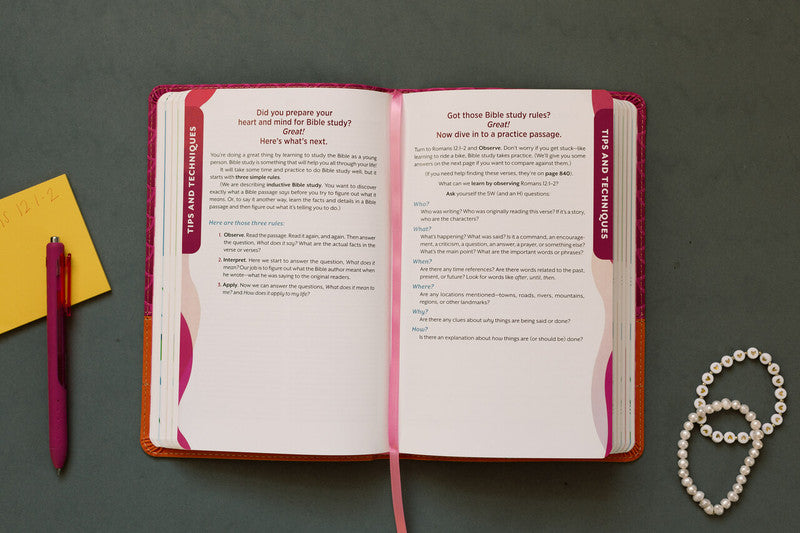 S 12:1-2
TIPS AND TECHNIQUES
Did you prepare your
heart and mind for Bible study?
Great!
Here's what's next.
You're doing a great thing by learning to study the Bible as a young
person. Bible study is something that will help you all through your life!
It will take some time and practice to do Bible study well, but it
starts with three simple rules.
(We are describing inductive Bible study. You want to discover
exactly what a Bible passage says before you try to figure out what it
means. Or, to say it another way, learn the facts and details in a Bible
passage and then figure out what it's telling you to do.)
Here are those three rules:
1. Observe. Read the passage. Read it again, and again. Then answer
the question, What does it say? What are the actual facts in the
verse or verses?
2. Interpret. Here we start to answer the question, What does it
mean? Our job is to figure out what the Bible author meant when
he wrote—what he was saying to the original readers.
3. Apply. Now we can answer the questions, What does it mean to
me? and How does it apply to my life?
Got those Bible study rules?
Great!
Now dive in to a practice passage.
Turn to Romans 12:1-2 and Observe. Don't worry if you get stuck—like
learning to ride a bike, Bible study takes practice. (We'll give you some
answers on the next page if you want to compare against them.)
(If you need help finding these verses, they're on page 840).
What can we learn by observing Romans 12:1–2?
Ask yourself the 5W (and an H) questions:
Who?
Who was writing? Who was originally reading this verse? If it's a story,
who are the characters?
What?
What's happening? What was said? Is it a command, an encourage-
ment, a criticism, a question, an answer, a prayer, or something else?
What's the main point? What are the important words or phrases?
When?
Are there any time references? Are there words related to the past,
present, or future? Look for words like after, until, then.
Where?
Are any locations mentioned—towns, roads, rivers, mountains,
regions, or other landmarks?
Why?
Are there any clues about why things are being said or done?
How?
Is there an explanation about how things are (or should be) done?
TIPS AND TECHNIQUES